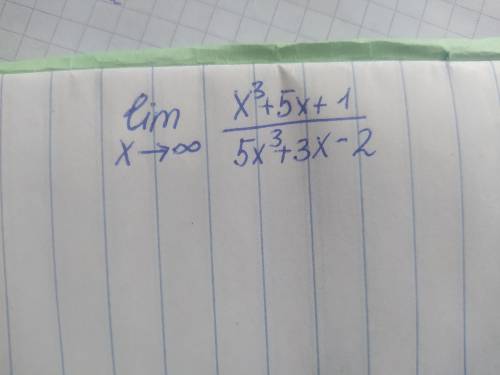 lim x→∞ (x³+5x+1)/(5x³+3x-2)